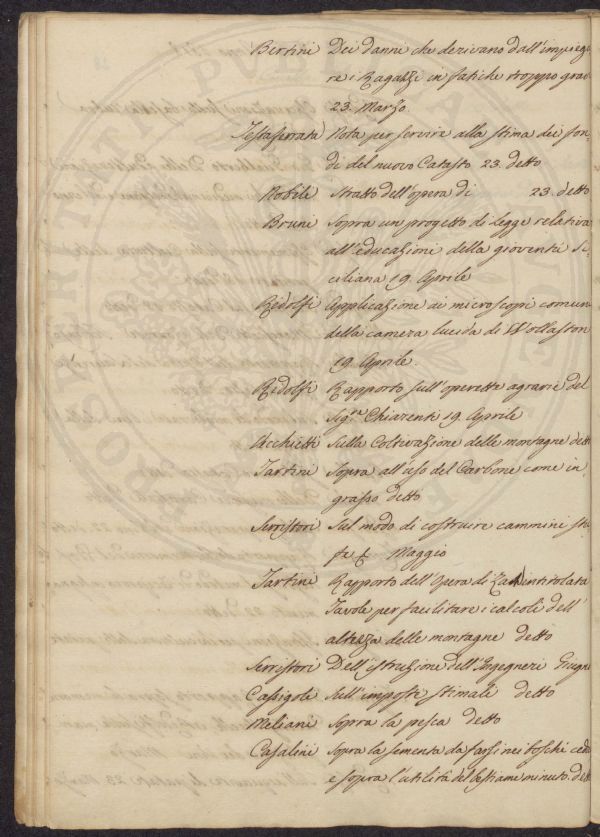 Bertini Dei danni che derivano dall'impiega
re i Ragazzi in fatiche troppo gravi
23. Marzo.
Testaferrata Nota per servire alla stima dei fon,
di del nuovo Catasto 23. detto
Nobili Stratto dell'opera di 23. detto
Bruni Sopra un progetto di Legge relativa
all'educazioni della gioventù Si,
ciliana 19. Aprile
Ridolfi Applicazione di microscopi comuni
della camera lucida di Wollaston
19. Aprile.
Ridolfi Rapporto sull'operette agrarie del
Sig.re Chiarenti 19. Aprile
Acchietti Sulla Coltivazione delle montagne detto
Tartini Sopra all'uso del Carbone come in,
grasso detto
Serristori Sul modo di costruire cammini stu
fe f. Maggio
Tartini Rapporto dell'Opera di intitolata
Tavole per facilitare i calcoli dell'
altezza delle montagne detto
Serristori Dell'istruzione dell'Ingegneri Giugno
Cassigoli Sull'imposte stimali detto
Meliani Sopra la pesca detto
Casalini Sopra la sementa da farsi nei boschi cedui
e sopra l'utilità del bestiame minuto. detto